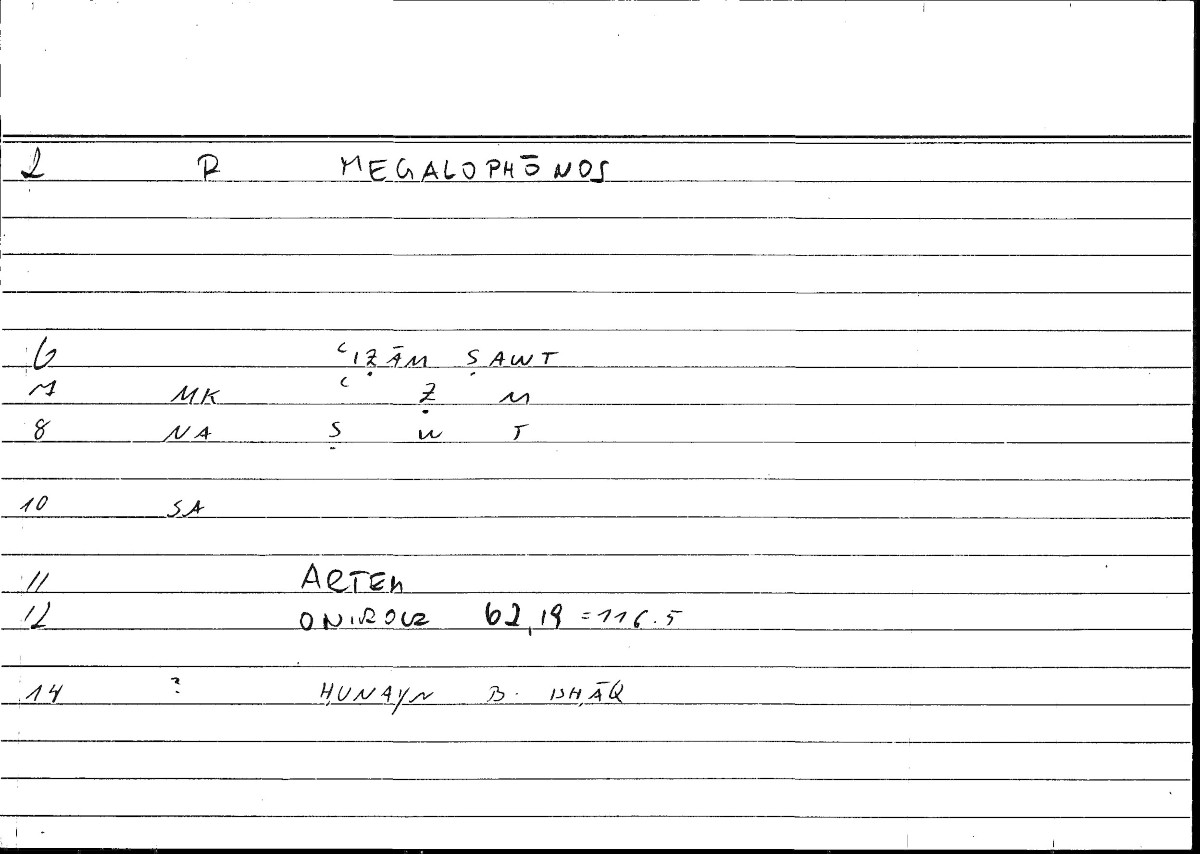 2 R MEGALOPHŌNOS
6 ʿIẒĀM ṢAWT
7 MK ʿ Ẓ M
8 NA Ṣ W T
10 SA
11 ARTEM
12 ONIROCR 62,19 = 116.5
14 ? ḤUNAYN B. ISḤĀQ